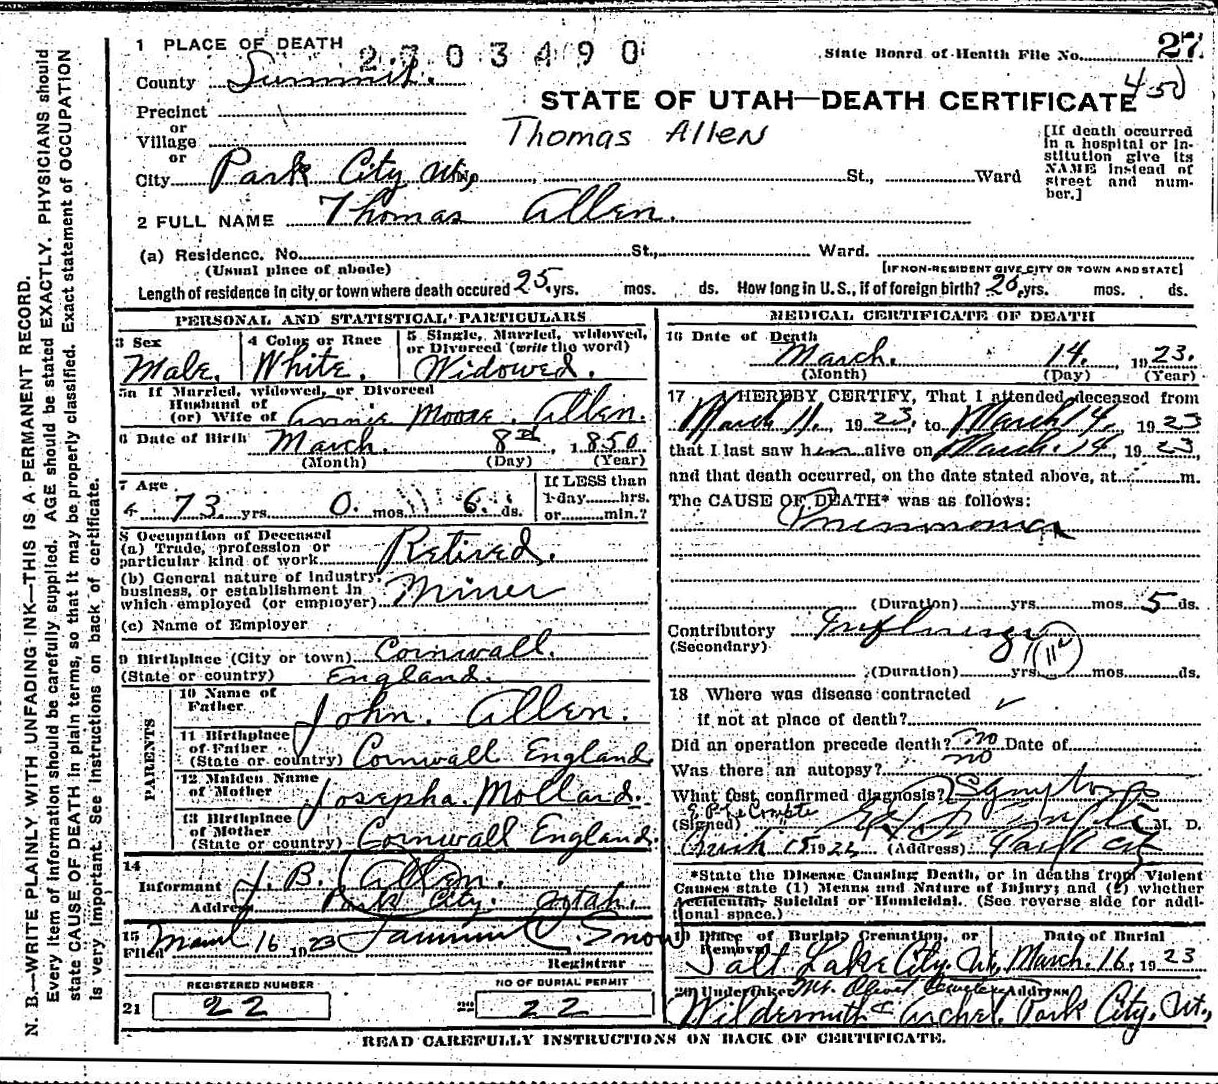 1 PLACE OF DEATH 2303490
State Board of Health File No. 27.
County Summit.
450
STATE OF UTAH—DEATH CERTIFICATE
Precinct
or
Village
Thomas Allen
or
City Park City Ut, St., Ward
[If death occurred in a hospital or institution give its NAME instead of street and number.]
2 FULL NAME Thomas Allen.
(a) Residence. No. St., Ward.
(Usual place of abode) [IF NON-RESIDENT GIVE CITY OR TOWN AND STATE]
Length of residence in city or town where death occured 25. yrs. mos. ds. How long in U. S., if of foreign birth? yrs. mos. ds.
PERSONAL AND STATISTICAL PARTICULARS
3 Sex
Male.
4 Color or Race
White.
5 Single, Married, widowed, or Divorced (write the word)
Widowed.
5a If Married, widowed, or Divorced
Husband of
(or) Wife of Annie Moore Allen.
6 Date of Birth March. 8th, 1850
(Month) (Day) (Year)
7 Age
73 yrs. 0. mos. 6. ds.
If LESS than
1 day hrs.
or min.?
8 Occupation of Deceased
(a) Trade, profession or
particular kind of work Retired.
(b) General nature of Industry,
business, or establishment in
which employed (or employer) Miner
(c) Name of Employer
9 Birthplace (City or town) Cornwall.
(State or country) England.
PARENTS
10 Name of
Father John. Allen.
11 Birthplace
of Father
(State or country) Cornwall England
12 Maiden Name
of Mother Josepha. Mollard.
13 Birthplace
of Mother
(State or country) Cornwall England.
14
Informant J. B. Allen.
Address Park City. Utah.
15
Filed March 16 1923 Snow
Registrar
REGISTERED NUMBER
21 22
NO OF BURIAL PERMIT
22 22
MEDICAL CERTIFICATE OF DEATH
16 Date of Death
March. 14. 1923.
(Month) (Day) (Year)
17 I HEREBY CERTIFY, That I attended deceased from
March 11., 1923, to March 14, 1923
that I last saw him alive on March. 14, 1923,
and that death occurred, on the date stated above, at m.
The CAUSE OF DEATH* was as follows:
Pneumonia
(Duration) yrs. mos. 5 ds.
Contributory Influenza
(Secondary)
(Duration) yrs. mos. ds.
18 Where was disease contracted
if not at place of death?
Did an operation precede death? no Date of
Was there an autopsy? no
What test confirmed diagnosis? Symptoms
E P LeCompte
(Signed) M. D.
(Address) Park City
*State the Disease Causing Death, or in deaths from Violent
Causes state (1) Means and Nature of Injury; and (2) whether
Accidental, Suicidal or Homicidal. (See reverse side for addi-
tional space.)
19 Place of Burial, Cremation, or Removal
Date of Burial
Salt Lake City, Ut, March. 16, 1923
20 Undertaker Mt. Olivet Cemetery Address
Wildermuth & Archer. Park City. Ut.,
READ CAREFULLY INSTRUCTIONS ON BACK OF CERTIFICATE.
N. B.—WRITE PLAINLY WITH UNFADING INK—THIS IS A PERMANENT RECORD.
Every item of information should be carefully supplied. AGE should be stated EXACTLY. PHYSICIANS should
state CAUSE OF DEATH in plain terms, so that it may be properly classified. Exact statement of OCCUPATION
is very important. See instructions on back of certificate.